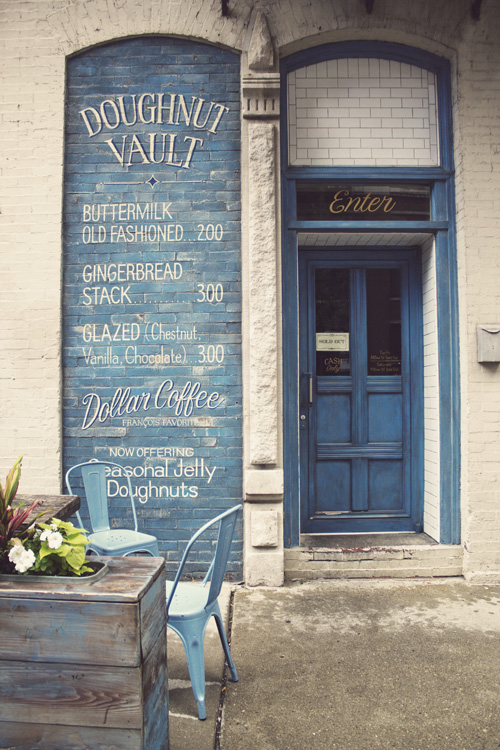 DOUGHNUT
VAULT
BUTTERMILK
OLD FASHIONED...2.00
GINGERBREAD
STACK..........3.00
GLAZED (Chestnut,
Vanilla, Chocolate)..3.00
Dollar Coffee
FRANÇOIS FAVORITE
NOW OFFERING
Seasonal Jelly
Doughnuts
Enter
SOLD OUT
CASH
Only